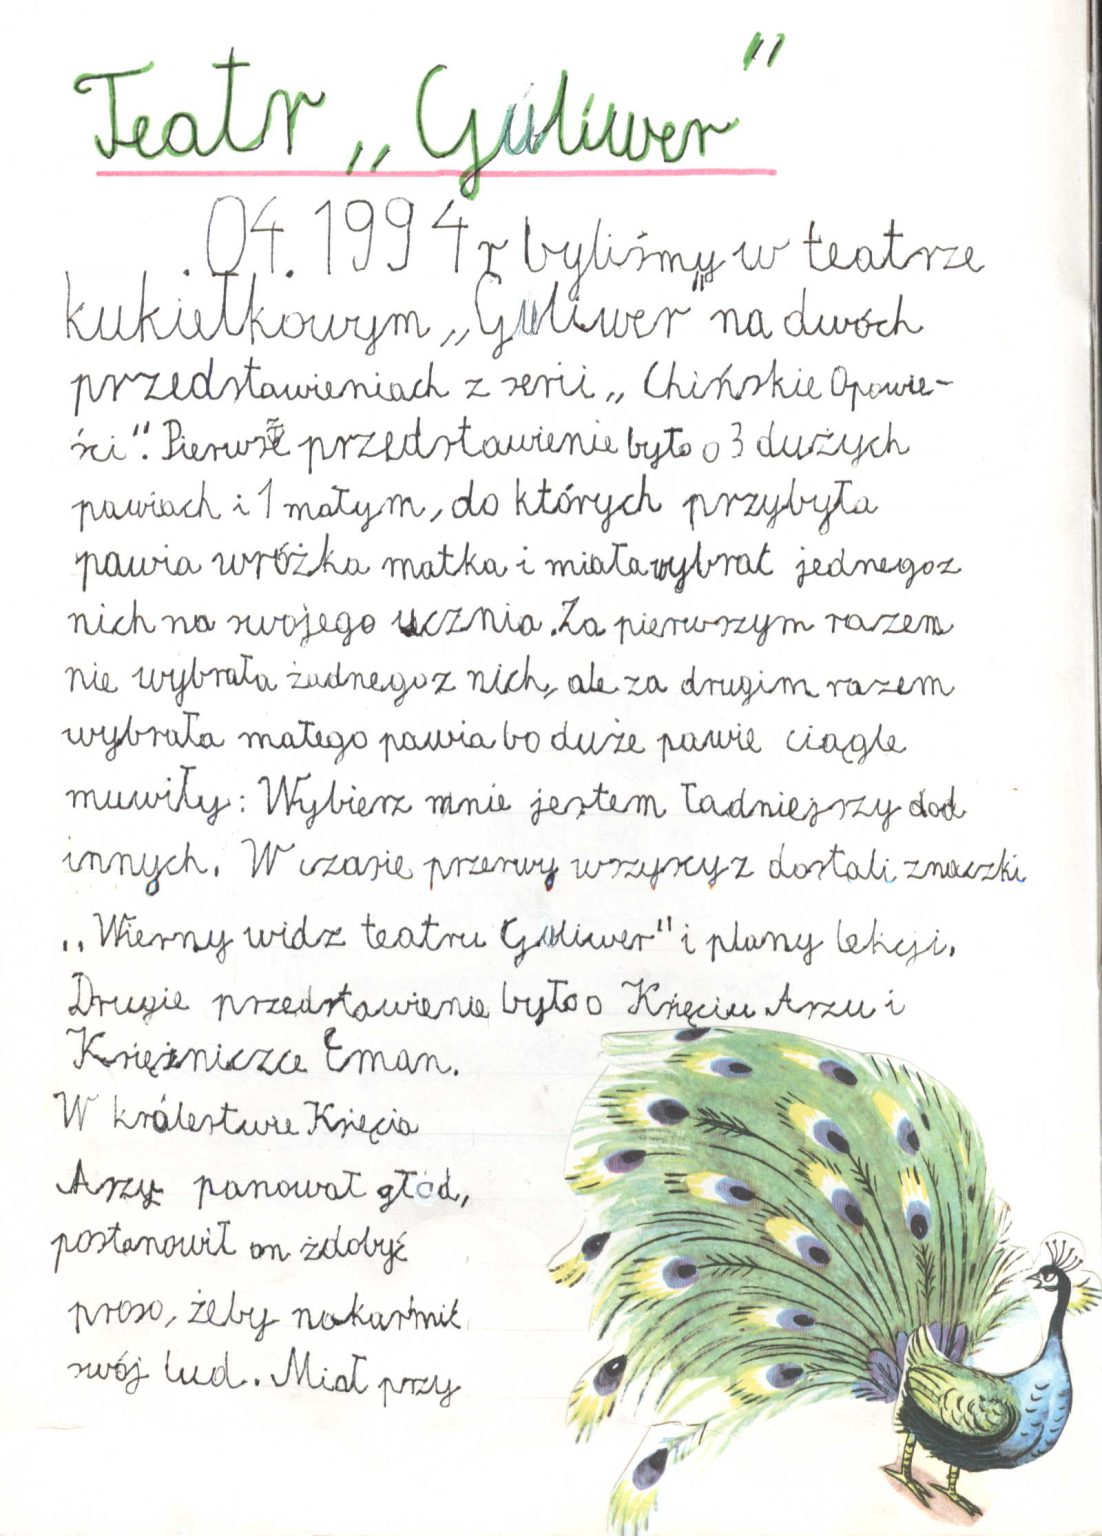 Teatr „Guliwer"
.04.1994 r byliśmy w teatrze
kukiełkowym „Guliwer" na dwóch
przedstawieniach z serii „Chińskie Opowie-
ści". Pierwsze przedstawienie było o 3 dużych
pawiach i 1 małym, do których przybyła
pawia wróżka matka i miała wybrać jednego z
nich na swojego ucznia. Za pierwszym razem
nie wybrała żadnego z nich, ale za drugim razem
wybrała małego pawia bo duże pawie ciągle
muwiły: Wybierz mnie jestem ładniejszy od
innych. W czasie przerwy wszyscy z dostali znaczki
„Wierny widz teatru Guliwer" i plany lekcji.
Drugie przedstawienie było o Księciu Arzu i
Księżniczce Eman.
W królestwie Księcia
Arzy panował głód,
postanowił on zdobyć
proso, żeby nakarmić
swój lud. Miał przy